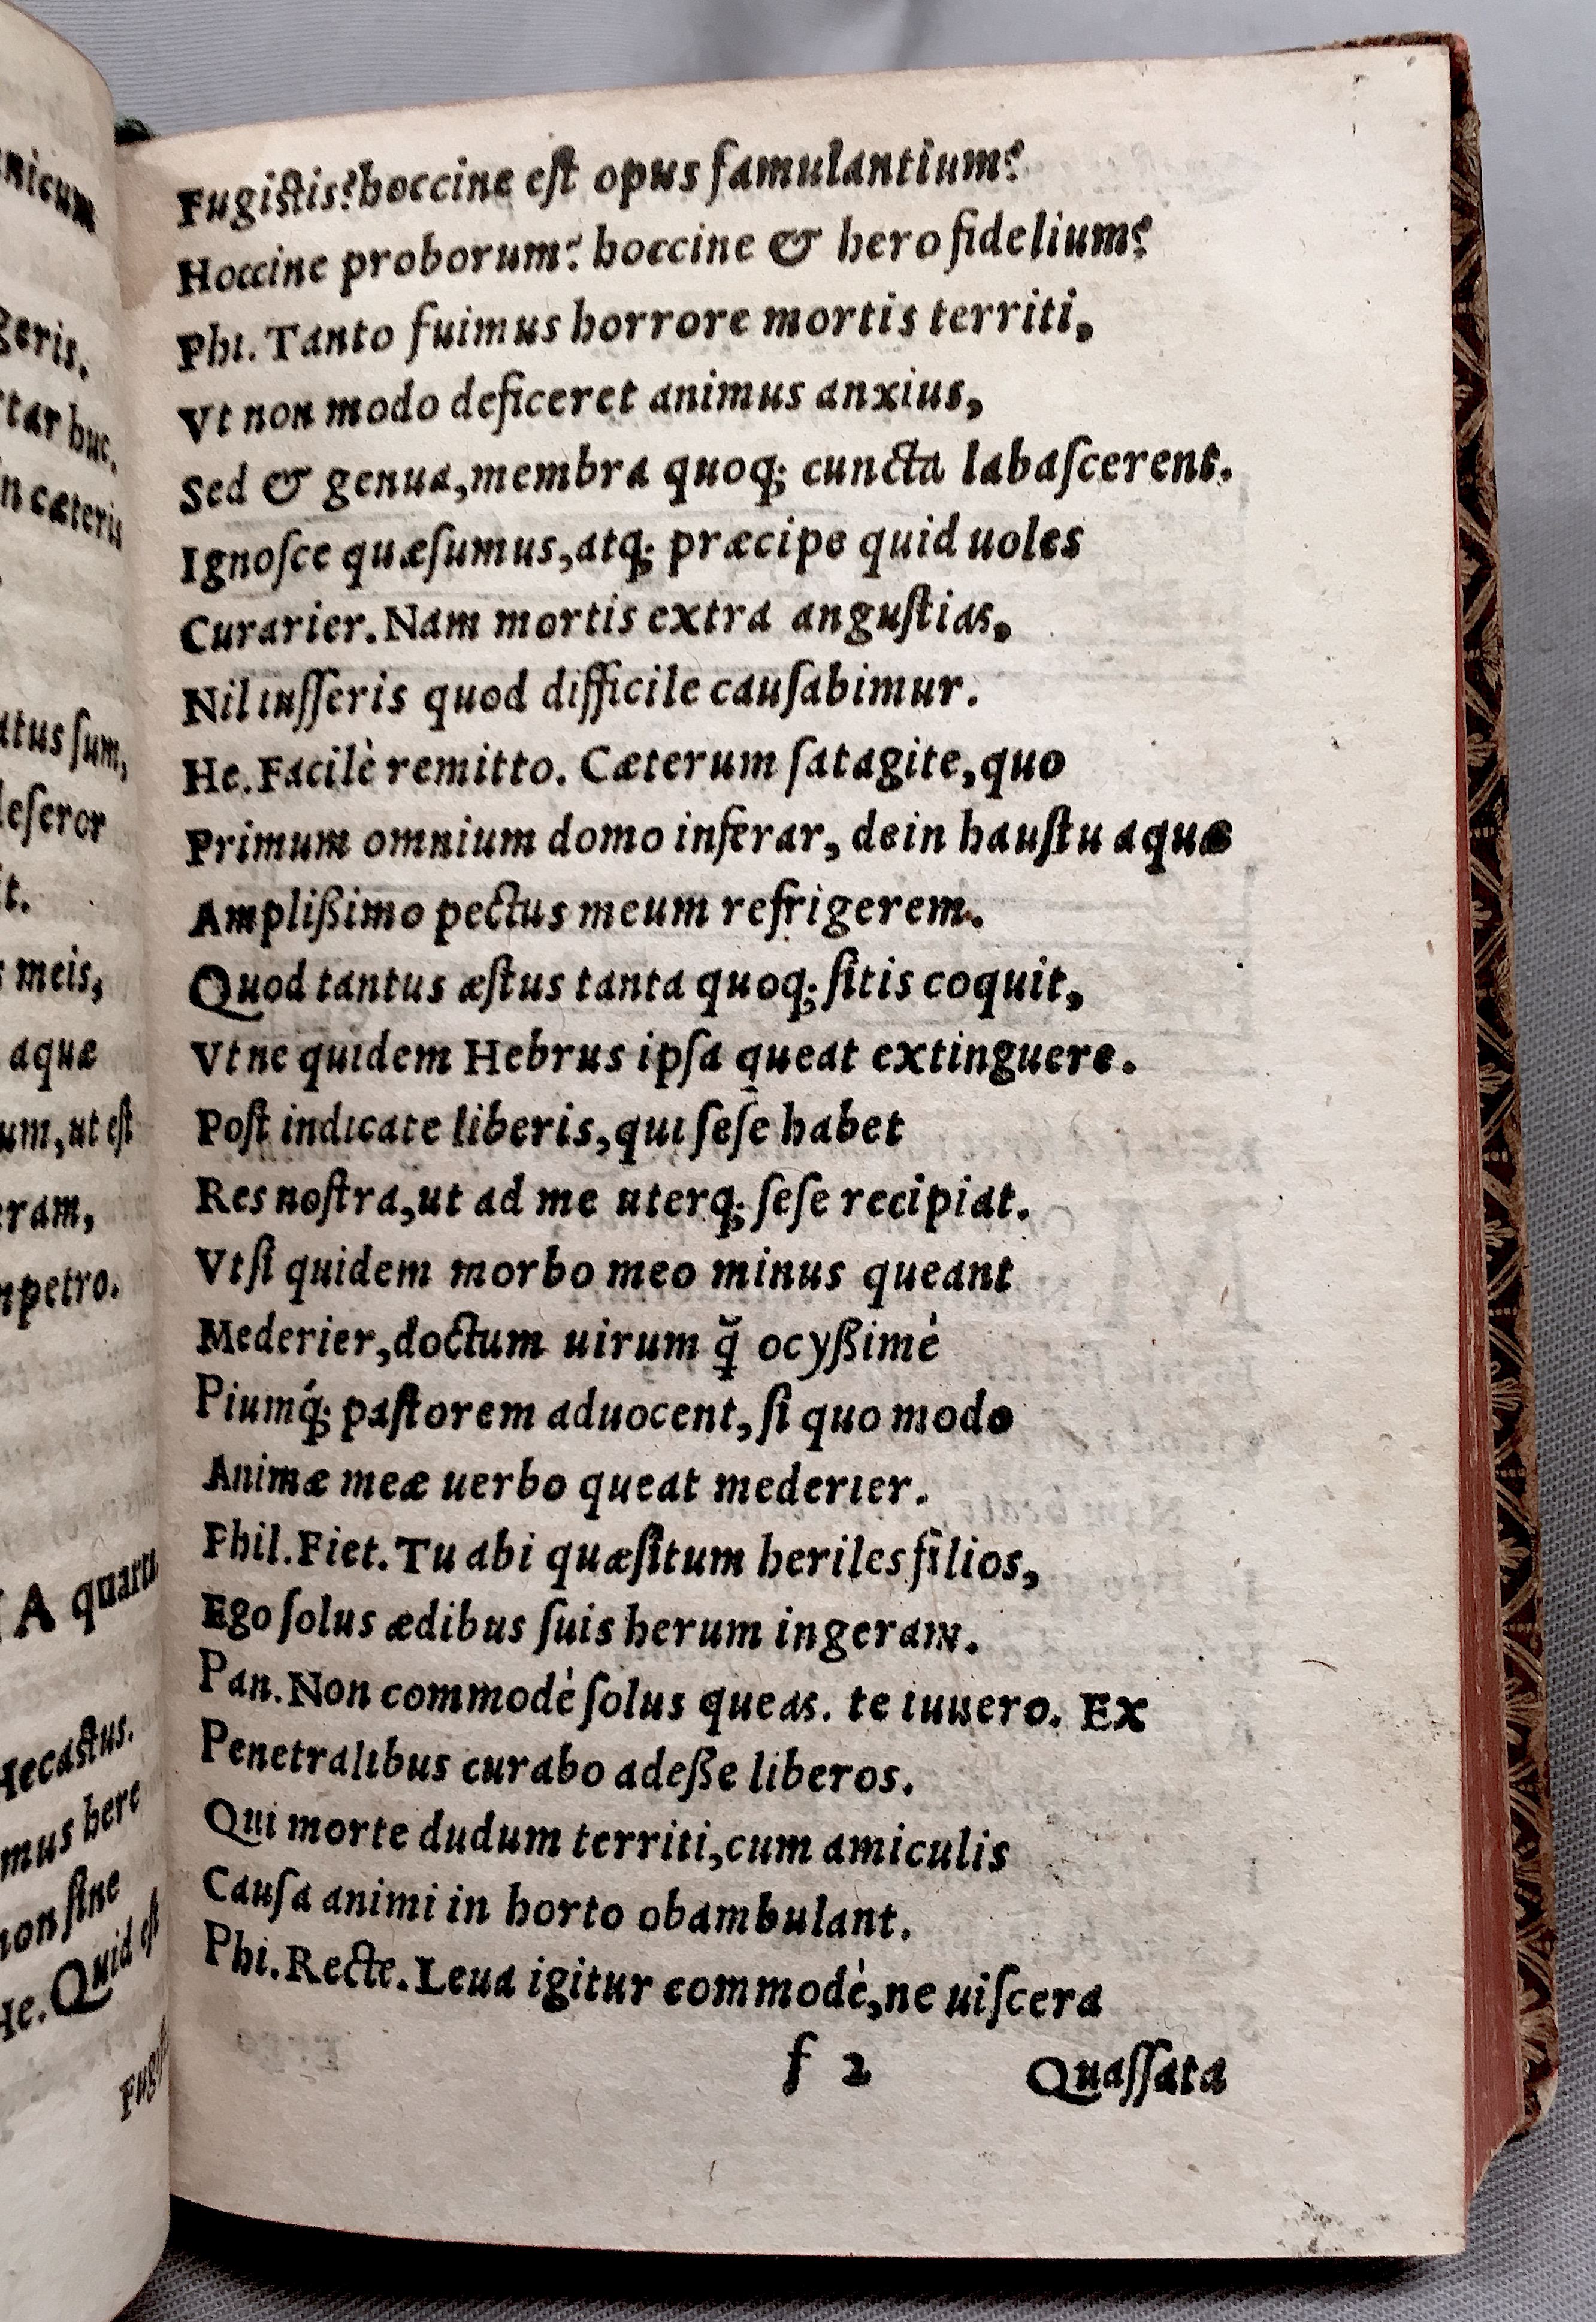 nicum
geris.
tar huc.
n cæteris
atus ſum,
deſeror
it.
s meis,
aquæ
um, ut eſt
eram,
mpetro.
A quarta
Hecaſtus.
mus here
non ſine
He. Quid eſt
Fugiſtis? hoccine eſt opus famulantium?
Hoccine proborum? hoccine & hero fidelium?
Phi. Tanto fuimus horrore mortis territi,
Vt non modo deficeret animus anxius,
Sed & genua, membra quoq; cuncta labaſcerent.
Ignoſce quæſumus, atq; præcipe quid uoles
Curarier. Nam mortis extra anguſtias,
Nil iuſſeris quod difficile cauſabimur.
He. Facilè remitto. Cæterum ſatagite, quo
Primum omnium domo inferar, dein hauſtu aquæ
Amplißimo pectus meum refrigerem.
Quod tantus æſtus tanta quoq; ſitis coquit,
Vt ne quidem Hebrus ipſa queat extinguere.
Poſt indicate liberis, qui ſeſe habet
Res noſtra, ut ad me uterq; ſeſe recipiat.
Vt ſi quidem morbo meo minus queant
Mederier, doctum uirum q̃ ocyßimè
Piumq́; paſtorem aduocent, ſi quo modo
Animæ meæ uerbo queat mederier.
Phil. Fiet. Tu abi quæſitum heriles filios,
Ego ſolus ædibus ſuis herum ingeram.
Pan. Non commodè ſolus queas. te iuuero. Ex
Penetralibus curabo adeßе liberos.
Qui morte dudum territi, cum amiculis
Cauſa animi in horto obambulant.
Phi. Recte. Leua igitur commodè, ne uiſcera
f 2 Quaſſata